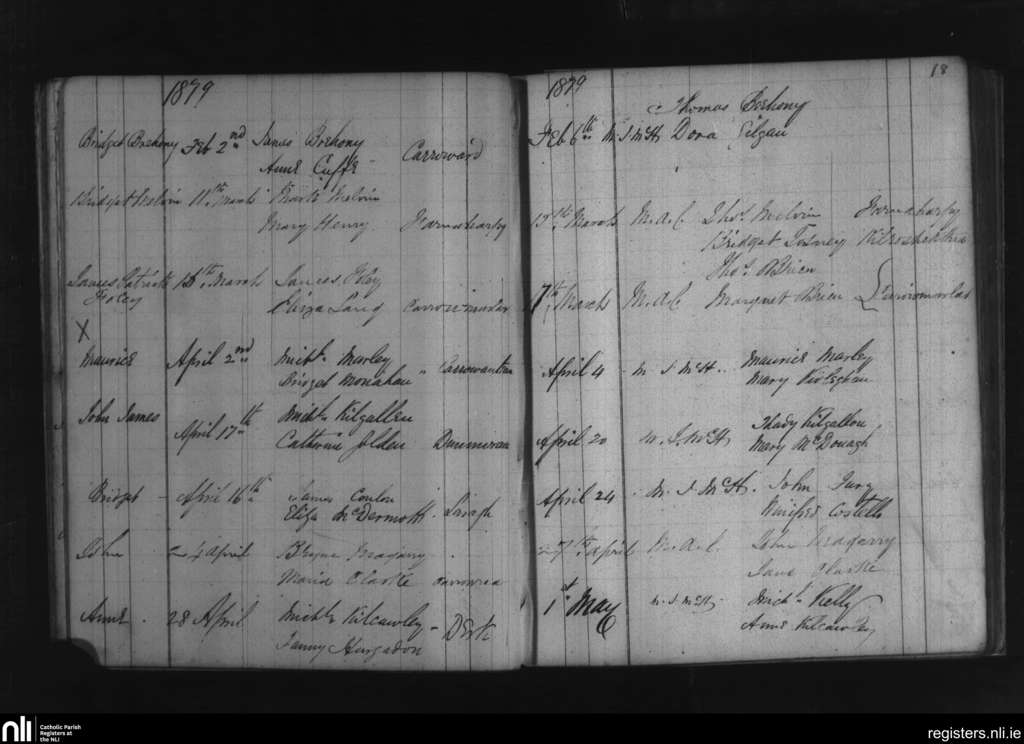 1879
Bridget Boshony Feb 2nd James Boshony
Anne Cuffe Carroward
Bridget Melvin 11th March Mark Melvin
Mary Henry
James Patrick 15th March James Foley
Foley Eliza Lang
X
Maurice April 2nd Michl Marley
Bridget Monahan
John James April 17th Michl Kilgallen
Catherine
Bridget - April 16th James Conlon
Eliza McDermott
John 24 April Magarry
Maria Clarke
Anne . 28 April Michl Kilcawley - Derk
Fanny Hargadon
1879
18
Thomas Boshony
Feb 6th M. J. McH Dora Gilgan
March M.A.C. Thos. Melvin
Bridget
Thos. O'Brien
March M.A.C. Margaret O'Brien
April 4 M J McH. Maurice Marley
Mary
April 20 M. J. McH Thady Kilgallon
Mary McDonagh
April 24 M. J McH. John
Winifred Costello
27th April M.A.C. John Magarry
Jane Clarke
1st May M J McH Michl Kelly
Anne Kilcawley
nli
Catholic Parish
Registers at
the NLI
registers.nli.ie